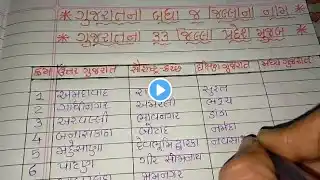 * ગુજરાતના બધા જ જિલ્લાના નામ *
* ગુજરાતના 33 જિલ્લા પ્રદેશ મુજબ *
ક્રમ ઉત્તર ગુજરાત સૌરાષ્ટ્ર-કચ્છ દક્ષિણ ગુજરાત મધ્ય ગુજરાત
1 અમદાવાદ સુરત
2 ગાંધીનગર અમરેલી ભરૂચ
3 અરવલ્લી ભાવનગર ડાંગ
4 બનાસકાંઠા બોટાદ નર્મદા
5 મહેસાણા દેવભૂમિ દ્વારકા નવસા
6 પાટણ ગીર સોમનાથ
જામનગર